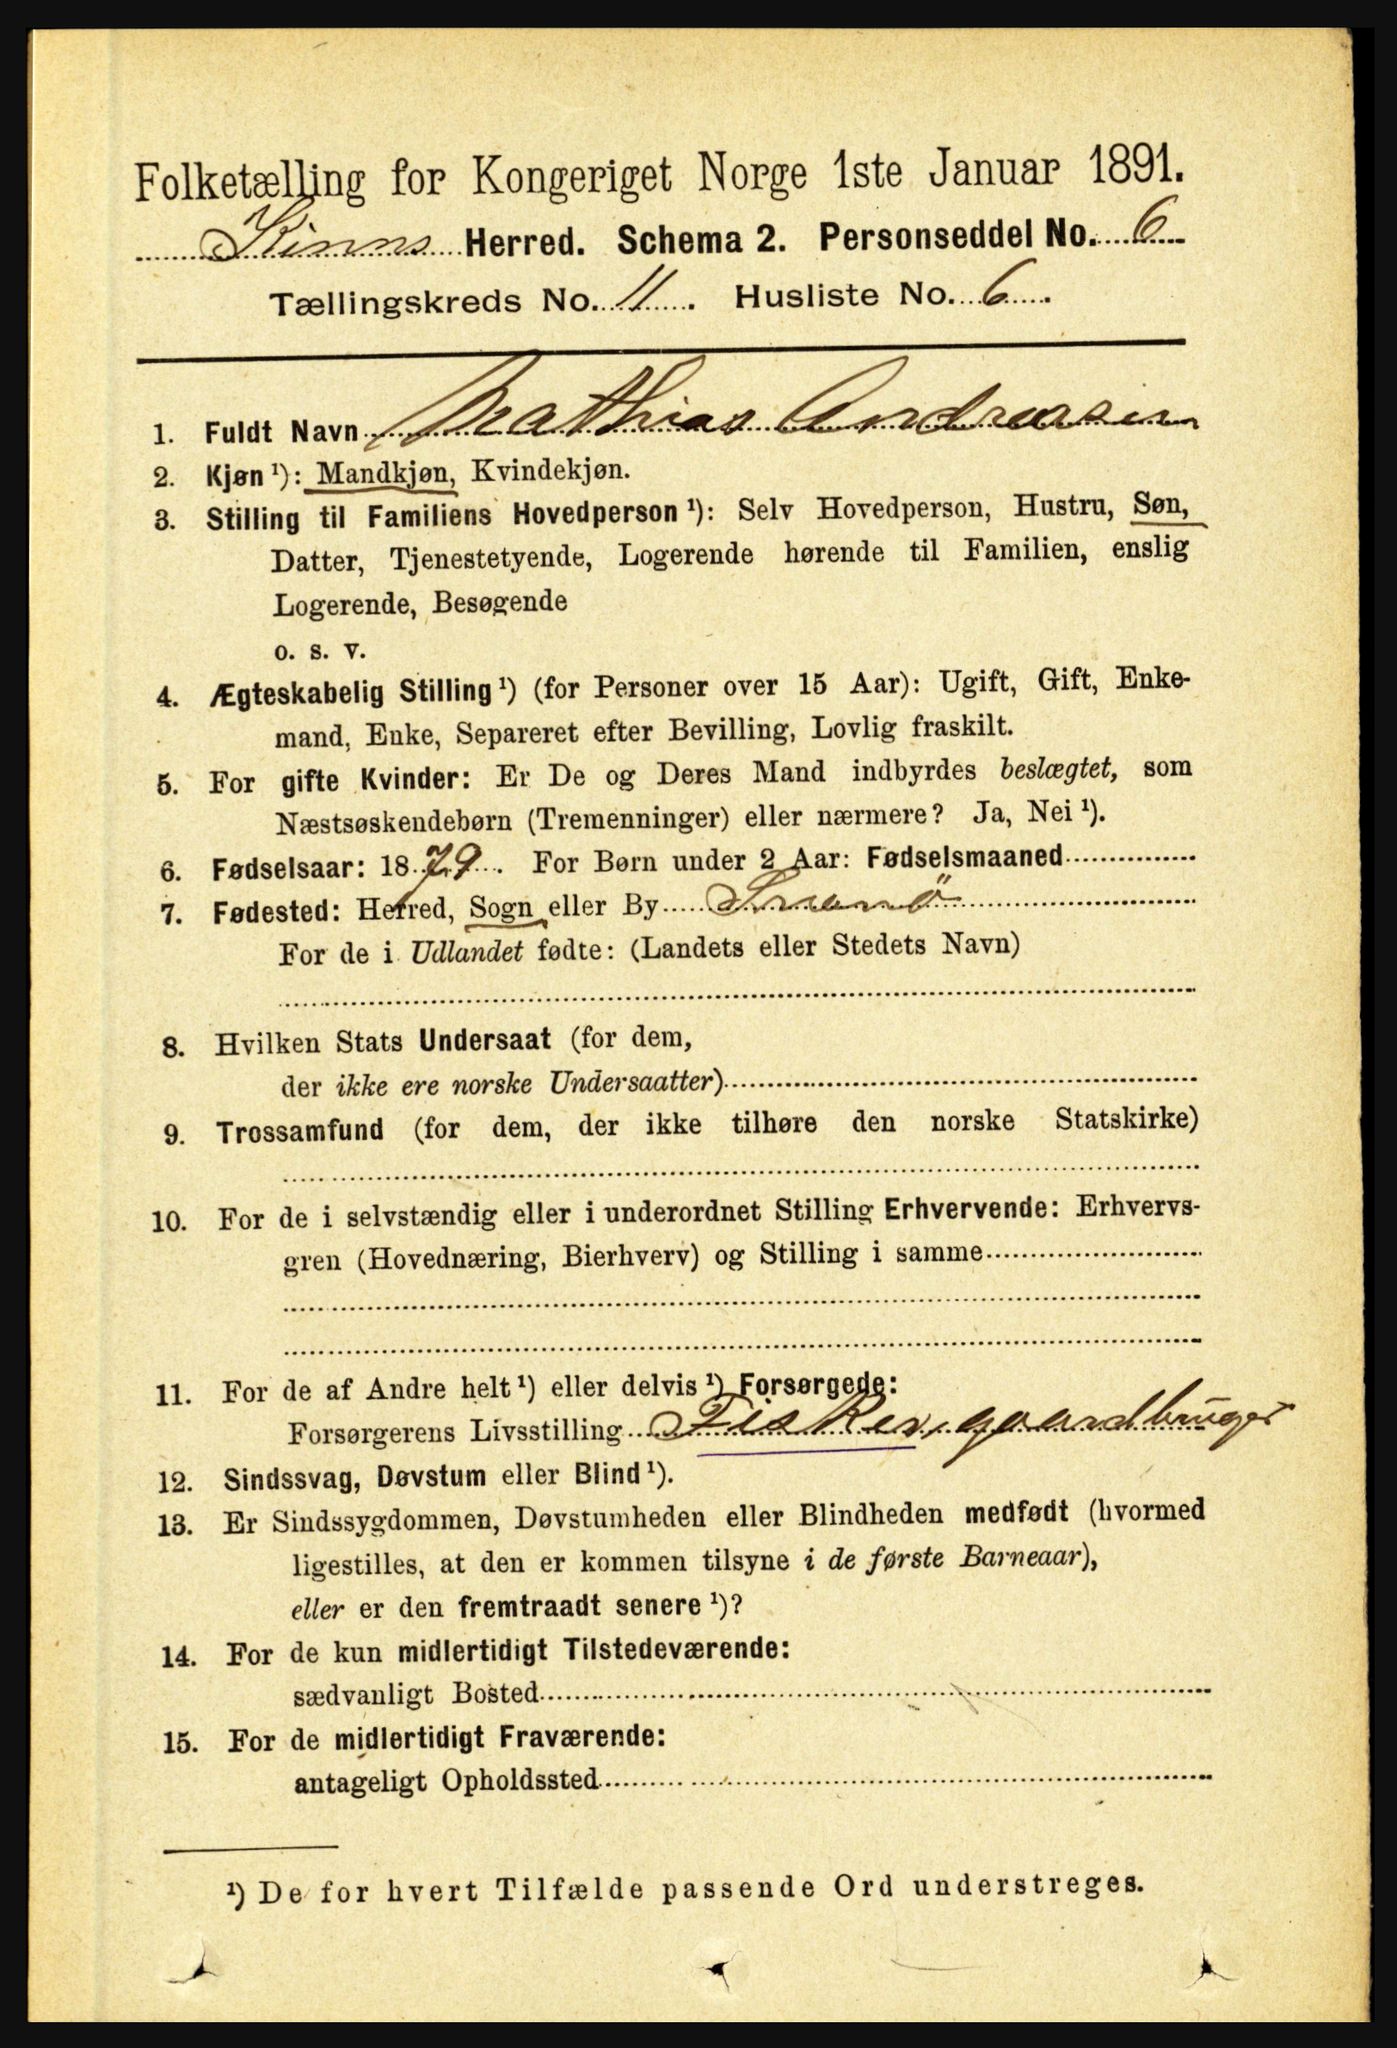 Folketælling for Kongeriget Norge 1ste Januar 1891.
Kinns Herred. Schema 2. Personseddel No. 6
Tællingskreds No. 11. Husliste No. 6.
1. Fuldt Navn Mathias Andreasen
2. Kjøn ¹): Mandkjøn, Kvindekjøn.
3. Stilling til Familiens Hovedperson ¹): Selv Hovedperson, Hustru, Søn,
Datter, Tjenestetyende, Logerende hørende til Familien, enslig
Logerende, Besøgende
o. s. v.
4. Ægteskabelig Stilling ¹) (for Personer over 15 Aar): Ugift, Gift, Enke-
mand, Enke, Separeret efter Bevilling, Lovlig fraskilt.
5. For gifte Kvinder: Er De og Deres Mand indbyrdes beslægtet, som
Næstsøskendebørn (Tremenninger) eller nærmere? Ja, Nei ¹).
6. Fødselsaar: 1879. For Børn under 2 Aar: Fødselsmaaned
7. Fødested: Herred, Sogn eller By Svanö
For de i Udlandet fødte: (Landets eller Stedets Navn)
8. Hvilken Stats Undersaat (for dem,
der ikke ere norske Undersaatter)
9. Trossamfund (for dem, der ikke tilhøre den norske Statskirke)
10. For de i selvstændig eller i underordnet Stilling Erhvervende: Erhvervs-
gren (Hovednæring, Bierhverv) og Stilling i samme
11. For de af Andre helt ¹) eller delvis ¹) Forsørgede:
Forsørgerens Livsstilling Fisker, gaardbruger
12. Sindssvag, Døvstum eller Blind ¹).
13. Er Sindssygdommen, Døvstumheden eller Blindheden medfødt (hvormed
ligestilles, at den er kommen tilsyne i de første Barneaar),
eller er den fremtraadt senere ¹)?
14. For de kun midlertidigt Tilstedeværende:
sædvanligt Bosted
15. For de midlertidigt Fraværende:
antageligt Opholdssted
¹) De for hvert Tilfælde passende Ord understreges.